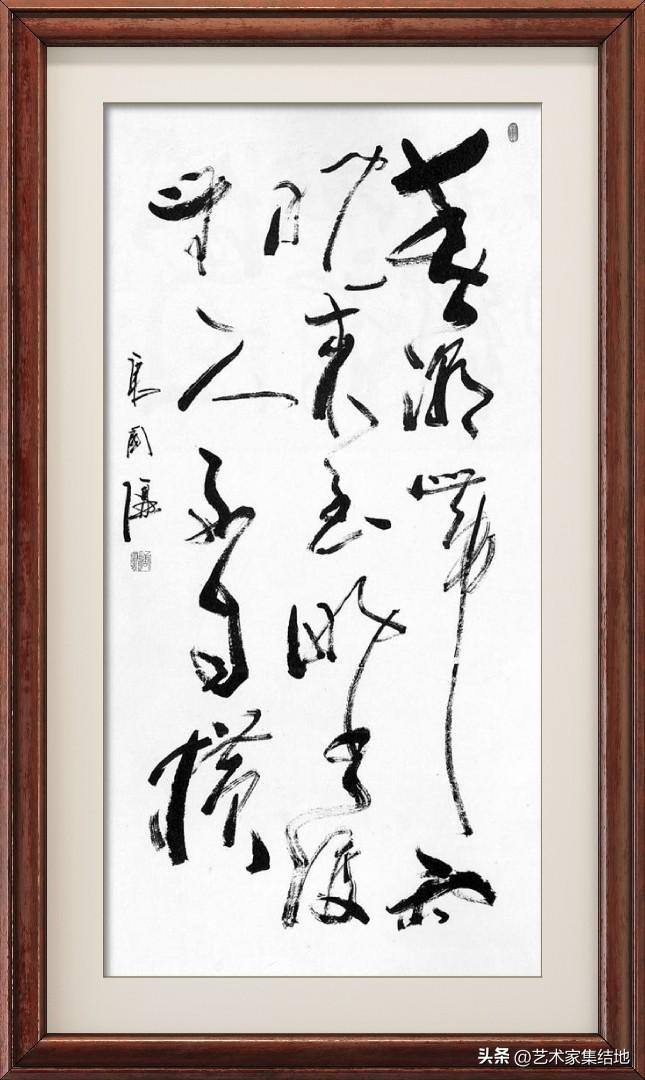 春潮帶雨
晚来急野渡
無人舟自横
头条 @艺术家集结地